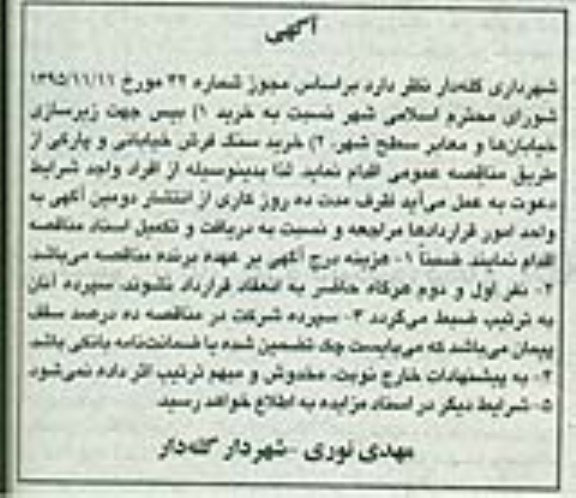 آگهی
شهرداری گله‌دار نظر دارد براساس مجوز شماره ۲۲ مورخ ۱۳۹۵/۱۱/۱۱
شورای محترم اسلامی شهر نسبت به خرید ۱) بیس جهت زیرسازی
خیابان‌ها و معابر سطح شهر، ۲) خرید سنگ فرش خیابانی و پارکی از
طریق مناقصه عمومی اقدام نماید. لذا بدینوسیله از افراد واجد شرایط
دعوت به عمل می‌آید ظرف مدت ده روز کاری از انتشار دومین آگهی به
واحد امور قراردادها مراجعه و نسبت به دریافت و تکمیل اسناد مناقصه
اقدام نمایند. ضمناً ۱- هزینه درج آگهی بر عهده برنده مناقصه می‌باشد.
۲- نفر اول و دوم هرگاه حاضر به انعقاد قرارداد نشوند، سپرده آنان
به ترتیب ضبط می‌گردد. ۳- سپرده شرکت در مناقصه ده درصد سقف
پیمان می‌باشد که می‌بایست چک تضمین شده یا ضمانت‌نامه بانکی باشد.
۴- به پیشنهادات خارج نوبت، مخدوش و مبهم ترتیب اثر داده نمی‌شود.
۵- شرایط دیگر در اسناد مزایده به اطلاع خواهد رسید.
مهدی نوری - شهردار گله‌دار